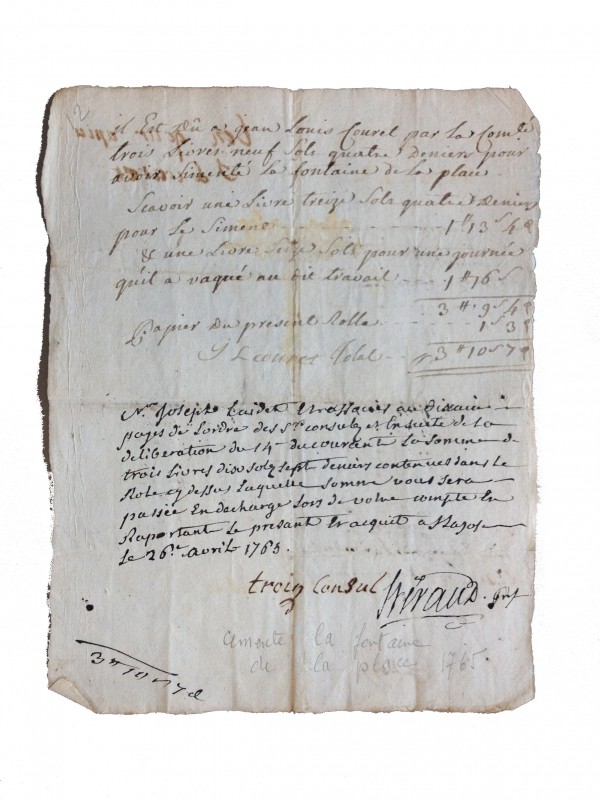 2
il Est dû a jean Louis Courel par la Com.te
trois Livres neuf sols quatre deniers pour
avoir simenté La fontaine de La place
Scavoir une Livre treize sols quatre Deniers
pour Le Siment 1 # 13 s 4 d
& une Livre seize sols pour une journée
qu'il a vaqué au dit travail 1 # 16 s
3 # 9 s 4 d
Papier du present Rolle 1 s 3 d
Total 3 # 10 s 7 d
Joseph
payés de Lordre des s.rs consuls et Ensuite de la
deliberation du 14e du courant La somme de
trois Livres dix sols sept deniers contenues dans le
Role cy dessus Laquelle somme vous sera
passée En decharge Lors de votre compte En
Raportant Le presant Et acquit a
Le 26e avril 1765.
troin Consul
Heraud
cimenté la fontaine
de la place 1765.
3 # 10 s 7 d